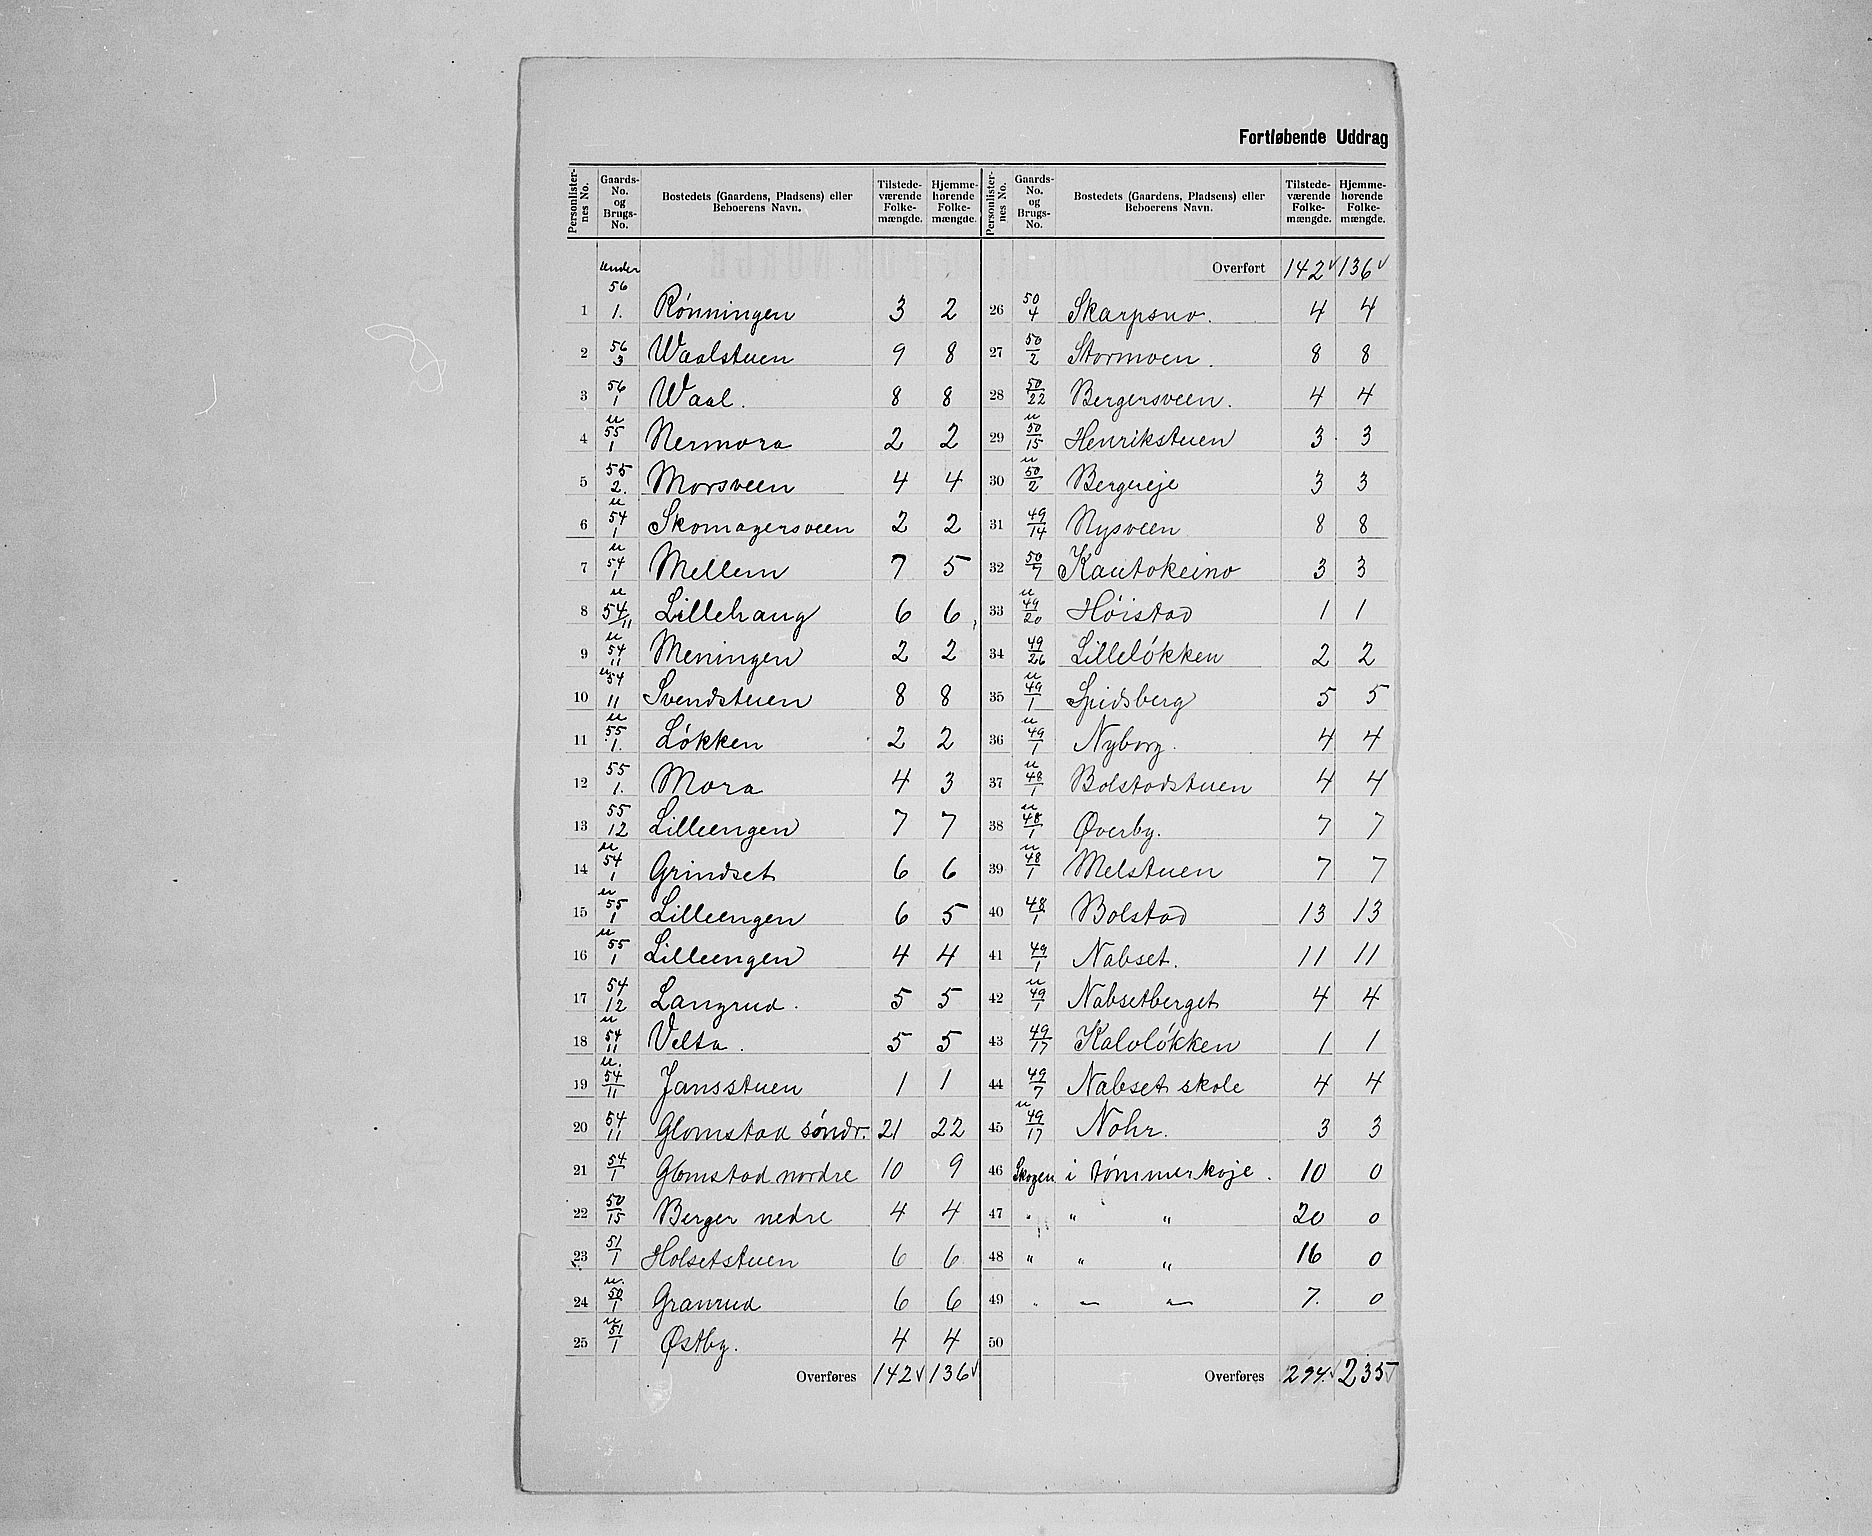 Fortløbende Uddrag
Personlisternes No. | Gaards-No. og Brugs-No. | Bostedets (Gaardens, Pladsens) eller Beboerens Navn. | Tilstedeværende Folkemængde. | Hjemmehørende Folkemængde. | Personlisternes No. | Gaards-No. og Brugs-No. | Bostedets (Gaardens, Pladsens) eller Beboerens Navn. | Tilstedeværende Folkemængde. | Hjemmehørende Folkemængde.
Overført 142 136
1 | Under 56/1. | Rønningen | 3 | 2 | 26 | 50/4 | Skarpsno. | 4 | 4
2 | 56/3 | Waalstuen | 9 | 8 | 27 | 50/2 | Stormoen. | 8 | 8
3 | 56/1 | Waal. | 8 | 8 | 28 | 50/22 | Bergersveen. | 4 | 4
4 | u 55/1 | Nermora | 2 | 2 | 29 | u 50/15 | Henrikstuen | 3 | 3
5 | 55/2. | Morsveen | 4 | 4 | 30 | u 50/2 | Bergseje | 3 | 3
6 | u 54/1 | Skomagersveen | 2 | 2 | 31 | 49/14 | Nysveen | 8 | 8
7 | u 54/1 | Mellem | 7 | 5 | 32 | 50/7 | Kautokeino | 3 | 3
8 | u 54/11 | Lillehaug | 6 | 6 | 33 | u 49/20 | Høistad | 1 | 1
9 | u 54/11 | Meningen | 2 | 2 | 34 | 49/26 | Lilleløkken | 2 | 2
10 | u 54/11 | Svendstuen | 8 | 8 | 35 | u 49/1 | Spidsberg | 5 | 5
11 | u 55/1. | Løkken | 2 | 2 | 36 | u 49/1 | Nyborg. | 4 | 4
12 | 55/1. | Mora | 4 | 3 | 37 | u 48/1 | Bolstadstuen | 4 | 4
13 | 55/12 | Lilleengen | 7 | 7 | 38 | u 48/1 | Øverby. | 7 | 7
14 | u 54/1 | Grindset | 6 | 6 | 39 | u 48/1 | Melstuen | 7 | 7
15 | u 55/1 | Lilleengen | 6 | 5 | 40 | 48/1 | Bolstad | 13 | 13
16 | u 55/1 | Lilleengen | 4 | 4 | 41 | 49/1 | Nabset. | 11 | 11
17 | 54/12 | Langrud. | 5 | 5 | 42 | u 49/1 | Nabsetberget | 4 | 4
18 | u 54/11 | Velta. | 5 | 5 | 43 | 49/17 | Kalvløkken | 1 | 1
19 | u. 54/11 | Jansstuen | 1 | 1 | 44 | 49/7 | Nabset skole | 4 | 4
20 | 54/11 | Glomstad søndr. | 21 | 22 | 45 | u 49/17 | Nohr. | 3 | 3
21 | 54/1 | Glomstad nordre | 10 | 9 | 46 | Skogen | i tømmerkoje. | 10 | 0
22 | 50/15 | Berger nedre | 4 | 4 | 47 | " | " " | 20 | 0
23 | 51/1 | Holsetstuen | 6 | 6 | 48 | " | " " | 16 | 0
24 | u. 50/1 | Granrud | 6 | 6 | 49 | " | — — | 7. | 0
25 | u 51/1 | Østby. | 4 | 4 | 50
Overføres 142 136 Overføres 294. 235